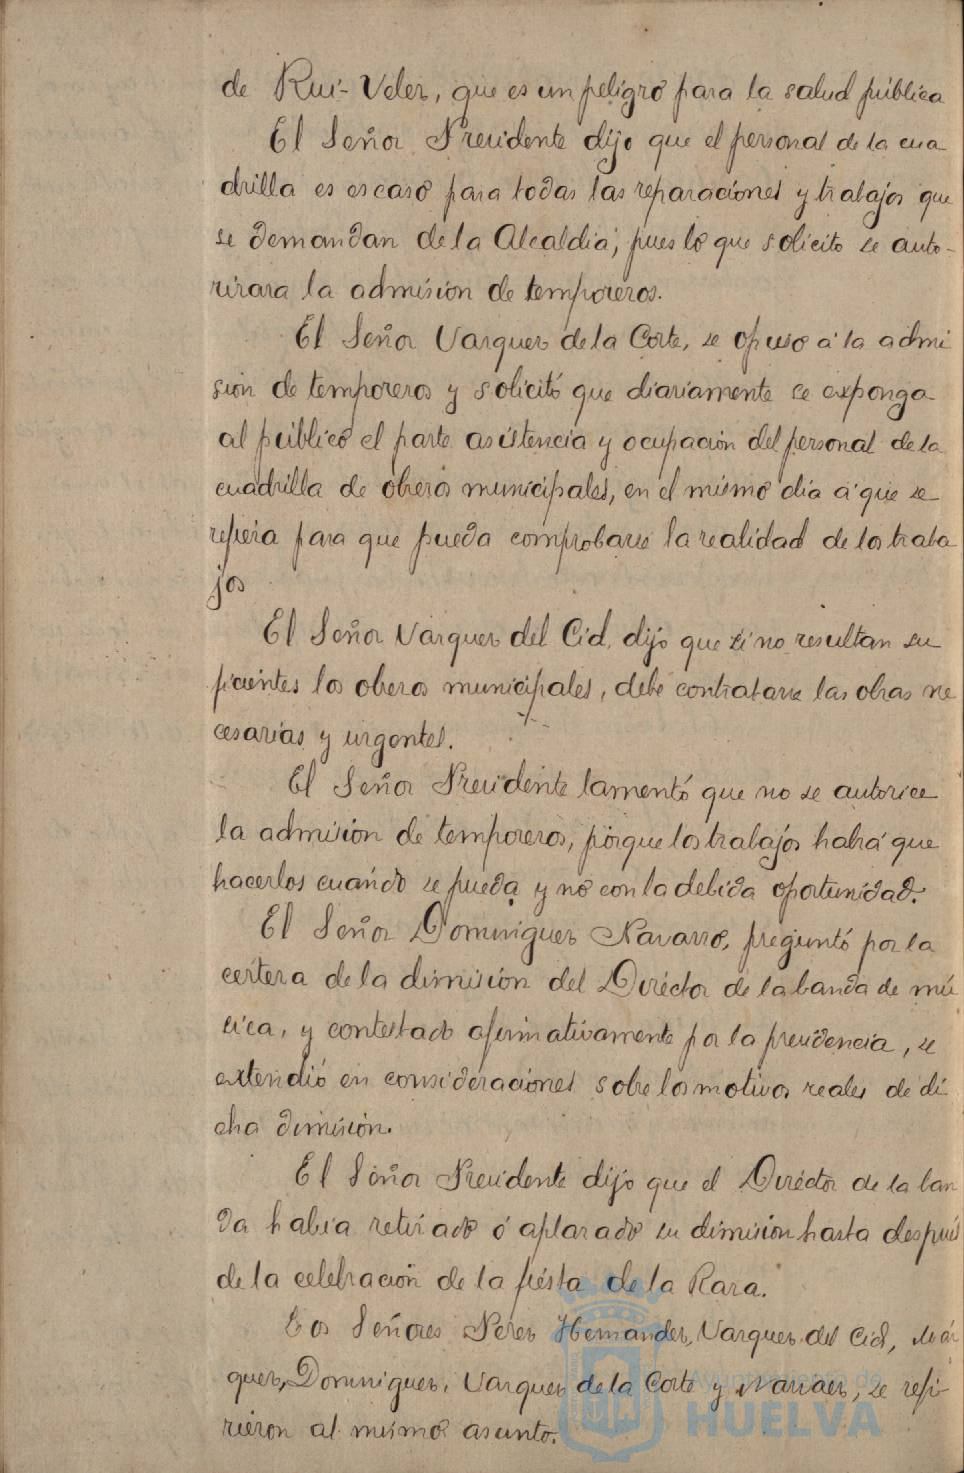 de Rui-Velez, que es un peligro para la salud pública
El Señor Presidente dijo que el personal de la cua
drilla es escaso para todas las reparaciones y trabajos que
se demandan de la Alcaldia, pues lo que solicito se auto-
rizara la admisión de temporeros.
El Señor Vazquez de la Corte, se opuso á la admi
sión de temporeros y solicitó que diariamente se exponga
al público el parte asistencia y ocupación del personal de la
cuadrilla de obreros municipales, en el mismo dia á que se
refiera para que pueda comprobarse la realidad de los traba
jos
El Señor Vazquez del Cid, dijo que si no resultan su
ficientes los obreros municipales, debe contratarse las obras ne
cesarias y urgentes.
El Señor Presidente lamentó que no se autorice
la admisión de temporeros, porque los trabajos habrá que
hacerlos cuando se pueda y no con la debida oportunidad.
El Señor Dominguez Navarro, preguntó por la
certeza de la dimisión del Diréctor de la banda de mú
sica, y contestado afirmativamente por la presidencia, se
extendió en consideraciones sobre los motivos reales de di
cha dimisión.
El Señor Presidente dijo que el Diréctor de la ban
da habia retirado ó aplazado su dimisión hasta después
de la celebración de la fiésta de la Raza.
Los Señores Perez Hernandez, Vazquez del Cid, Már
quez, Dominguez, Vazquez de la Corte y Narvaez, se refi-
rieron al mismo asunto.
Ayuntamiento de
HUELVA